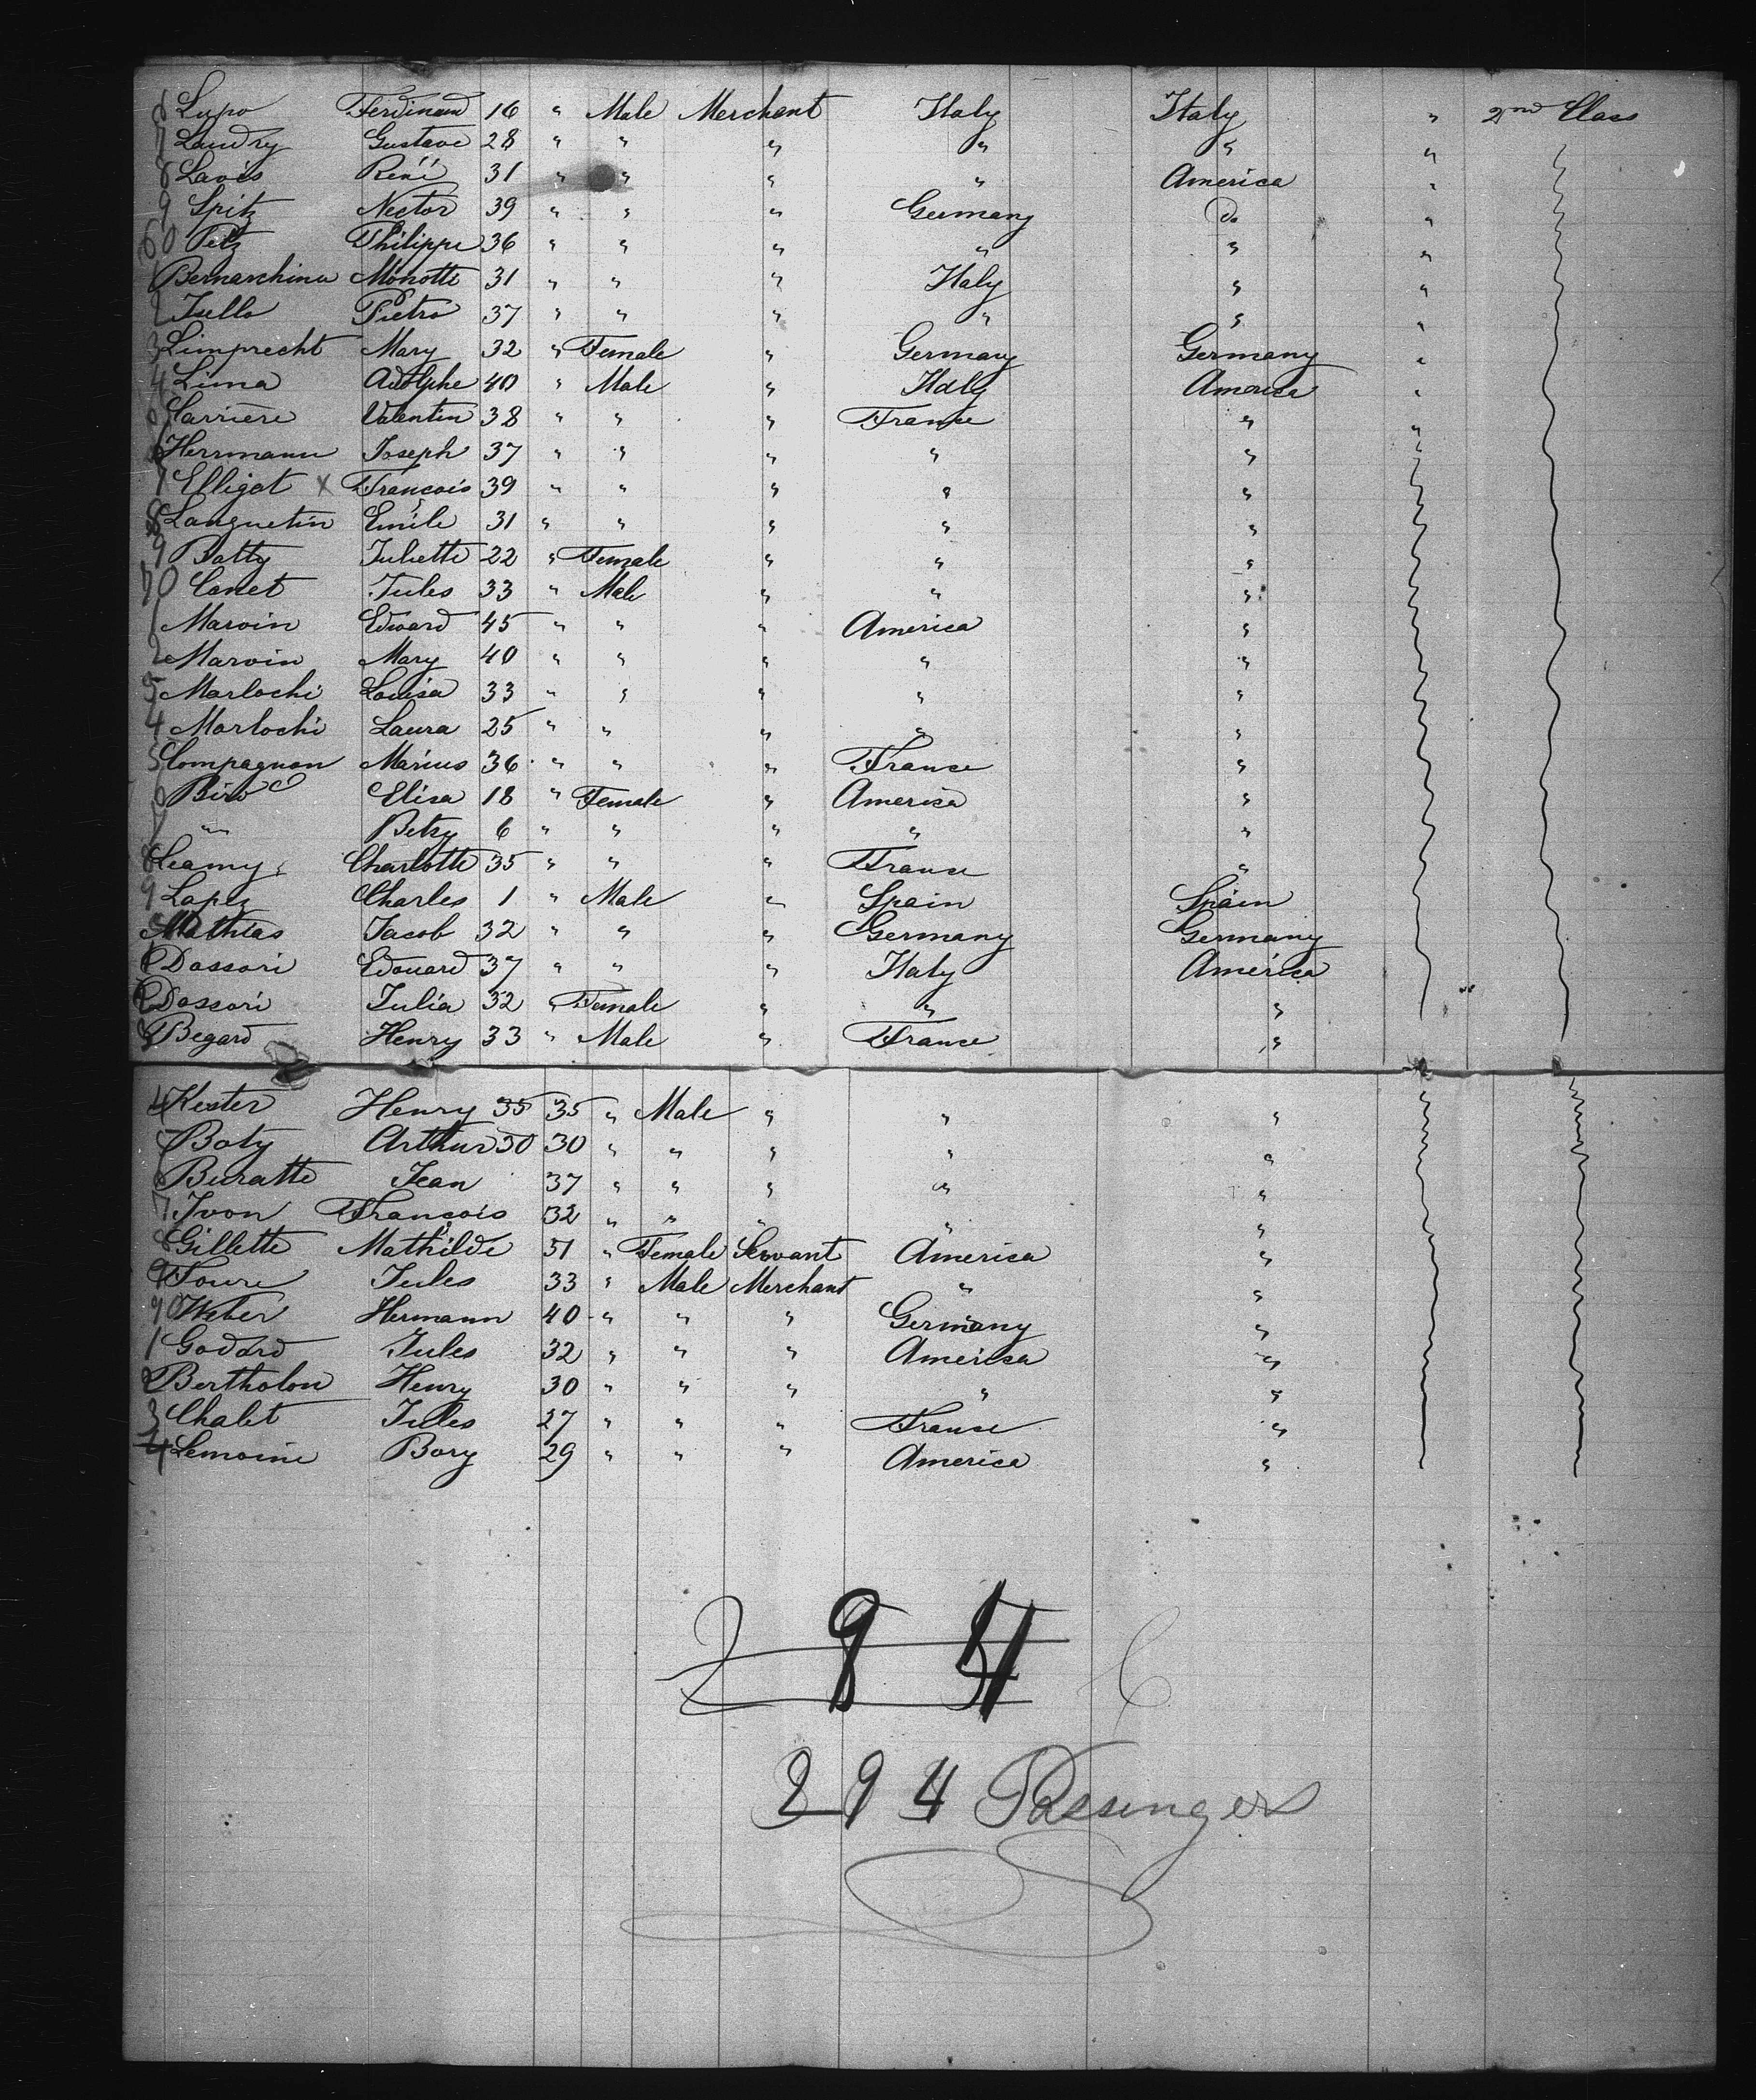 6 Lupo Ferdinand 16 " Male Merchant Italy Italy " 2nd Class
7 Landry Gustave 28 " " " " " "
8 Laves René 31 " " " " America "
9 Spitz Nector 39 " " " Germany Do "
60 Petz Philippe 36 " " " " " "
1 Bernarchina Monotti 31 " " " Italy " "
2 Tullo Pietro 37 " " " " " "
3 Limprecht Mary 32 " Female " Germany Germany "
4 Lima Adolphe 40 " Male " Italy America "
5 Carrière Valentin 38 " " " France " "
6 Herrmann Joseph 37 " " " " "
7 Elligot x Francois 39 " " " " "
8 Languetin Emile 31 " " " " "
9 Batty Juliette 22 " Female " " "
70 Canet Jules 33 " Male " " "
1 Marvin Edward 45 " " " America "
2 Marvin Mary 40 " " " " "
3 Marlochi Louisa 33 " " " " "
4 Marlochi Laura 25 " " " " "
5 Compagnon Marius 36 " " " France "
6 Bird Elisa 18 " Female " America "
7 " Betsy 6 " " " " "
8 Leamy Charlotte 35 " " " France "
9 Lapez Charles 1 " Male " Spain Spain
Mathias Jacob 32 " " " Germany Germany
1 Dassori Edouard 37 " " " Italy America
2 Dassori Julia 32 " Female " " "
3 Begard Henry 33 " Male " France "
4 Kester Henry 35 35 " Male " " "
5 Boty Arthur 30 30 " " " " "
6 Buratte Jean 37 " " " " "
7 Ivon Francois 32 " " " " "
8 Gillette Mathilde 51 " Female Servant America "
9 Foure Jules 33 " Male Merchant " "
90 Weber Hermann 40 " " " Germany "
1 Godard Jules 32 " " " America "
2 Bertholon Henry 30 " " " " "
3 Chalet Jules 27 " " " France "
4 Lemoine Bory 29 " " " America "
294 Passengers